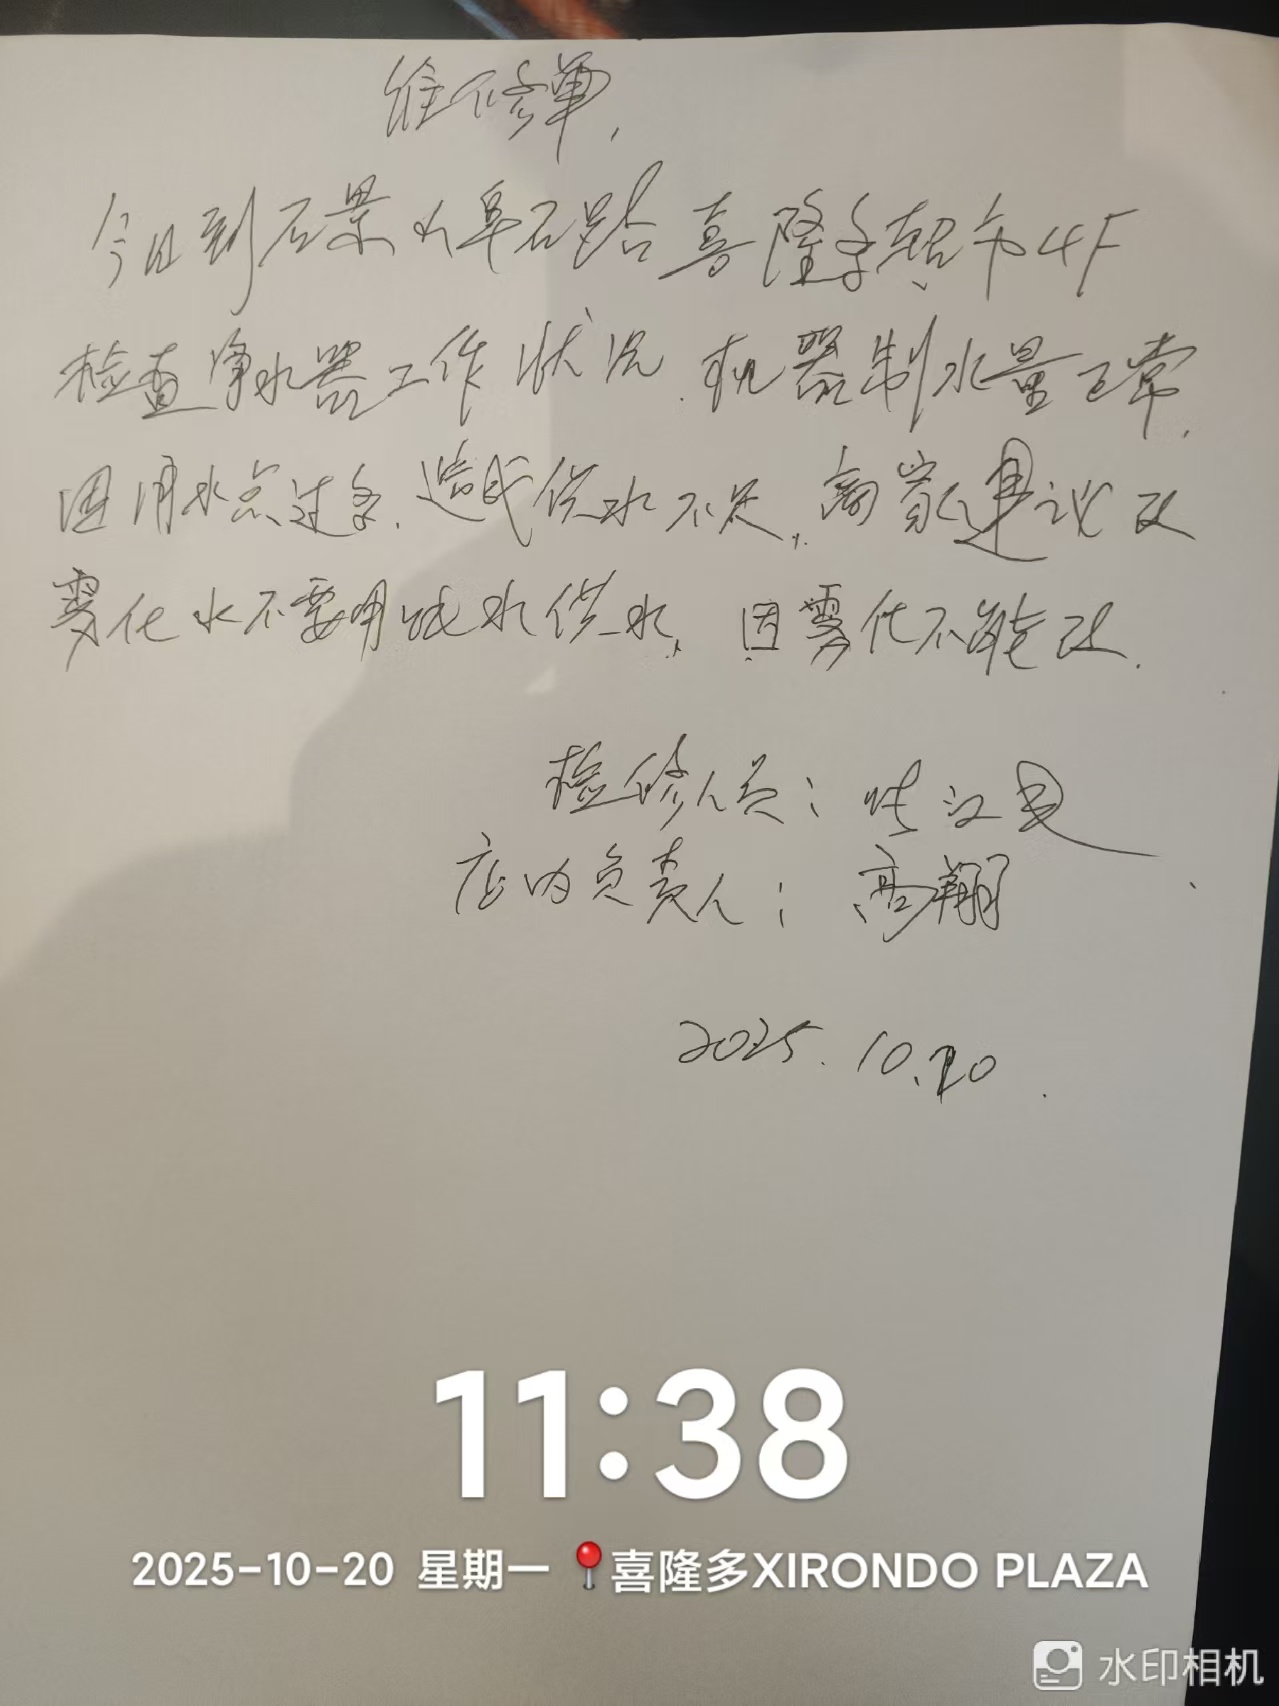 维修单,
今日到石景山阜石路喜隆多超市4F
检查净水器工作状况.机器制水量正常,
因用水点过多,造成供水不足,商家建议改
雾化水不要用纯水供水,因雾化不能改.
检修人员:
店内负责人:高翔
2025.10.20
11:38
2025-10-20 星期一 喜隆多XIRONDO PLAZA
水印相机